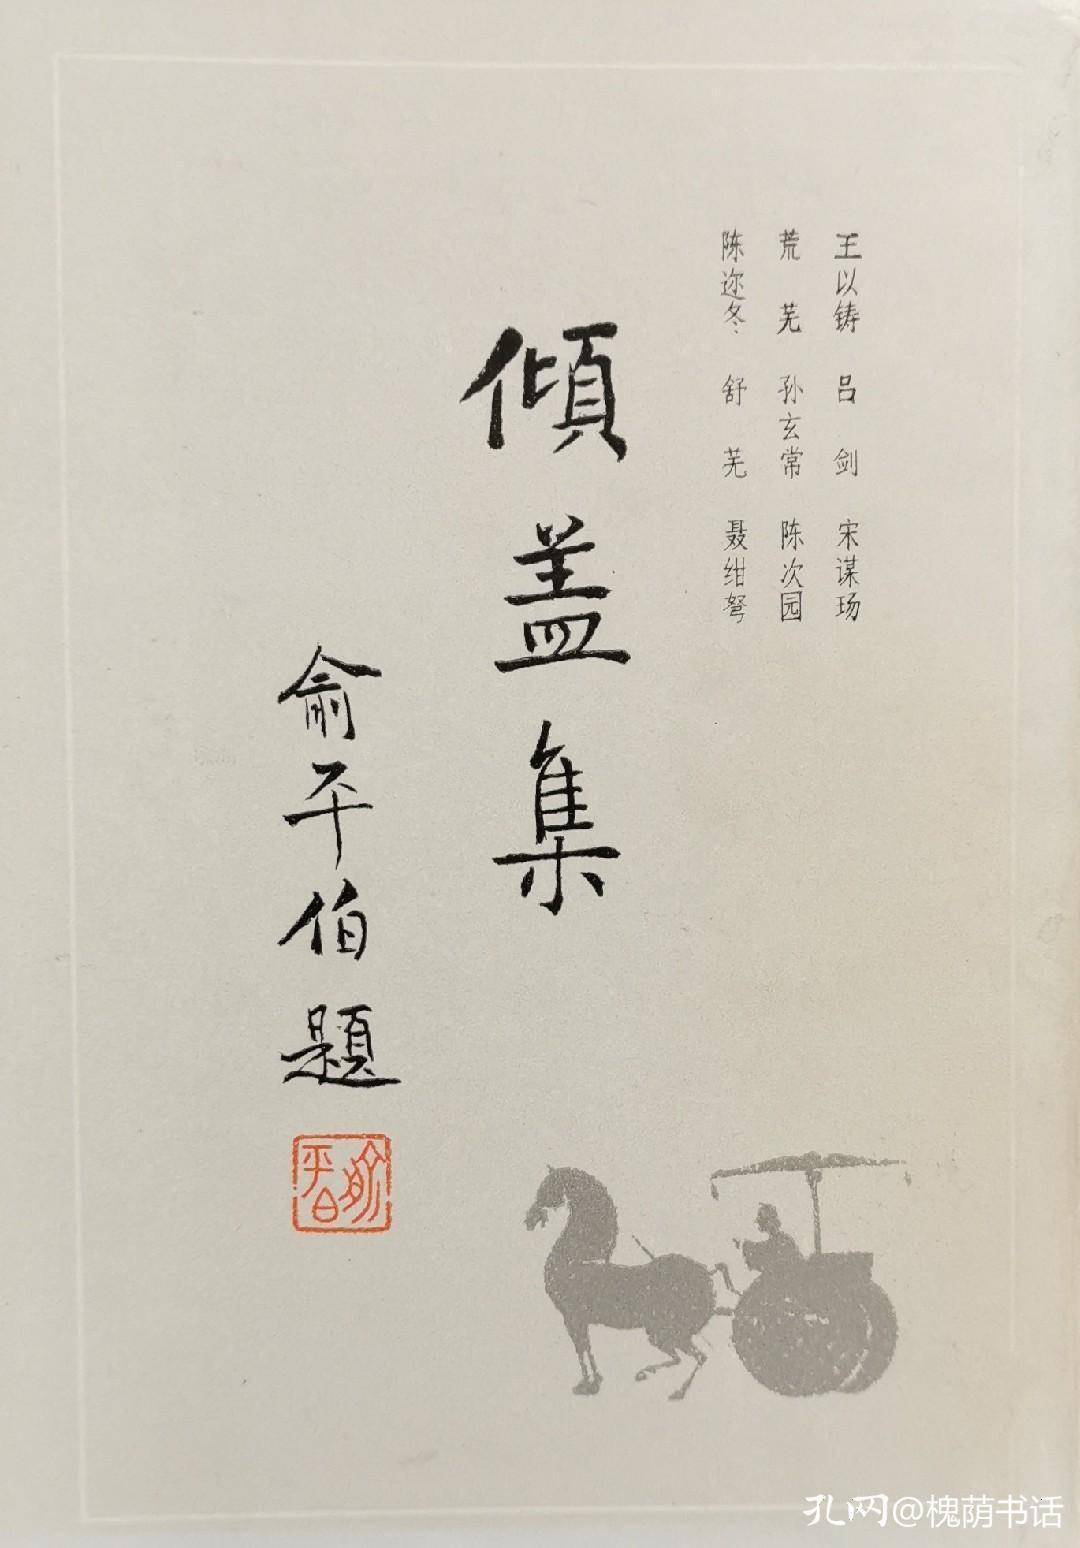 王以铸 吕剑 宋谋玚
荒芜 孙玄常 陈次园
陈迩冬 舒芜 聂绀弩
傾盖集
俞平伯題
俞平白
孔网@槐荫书话